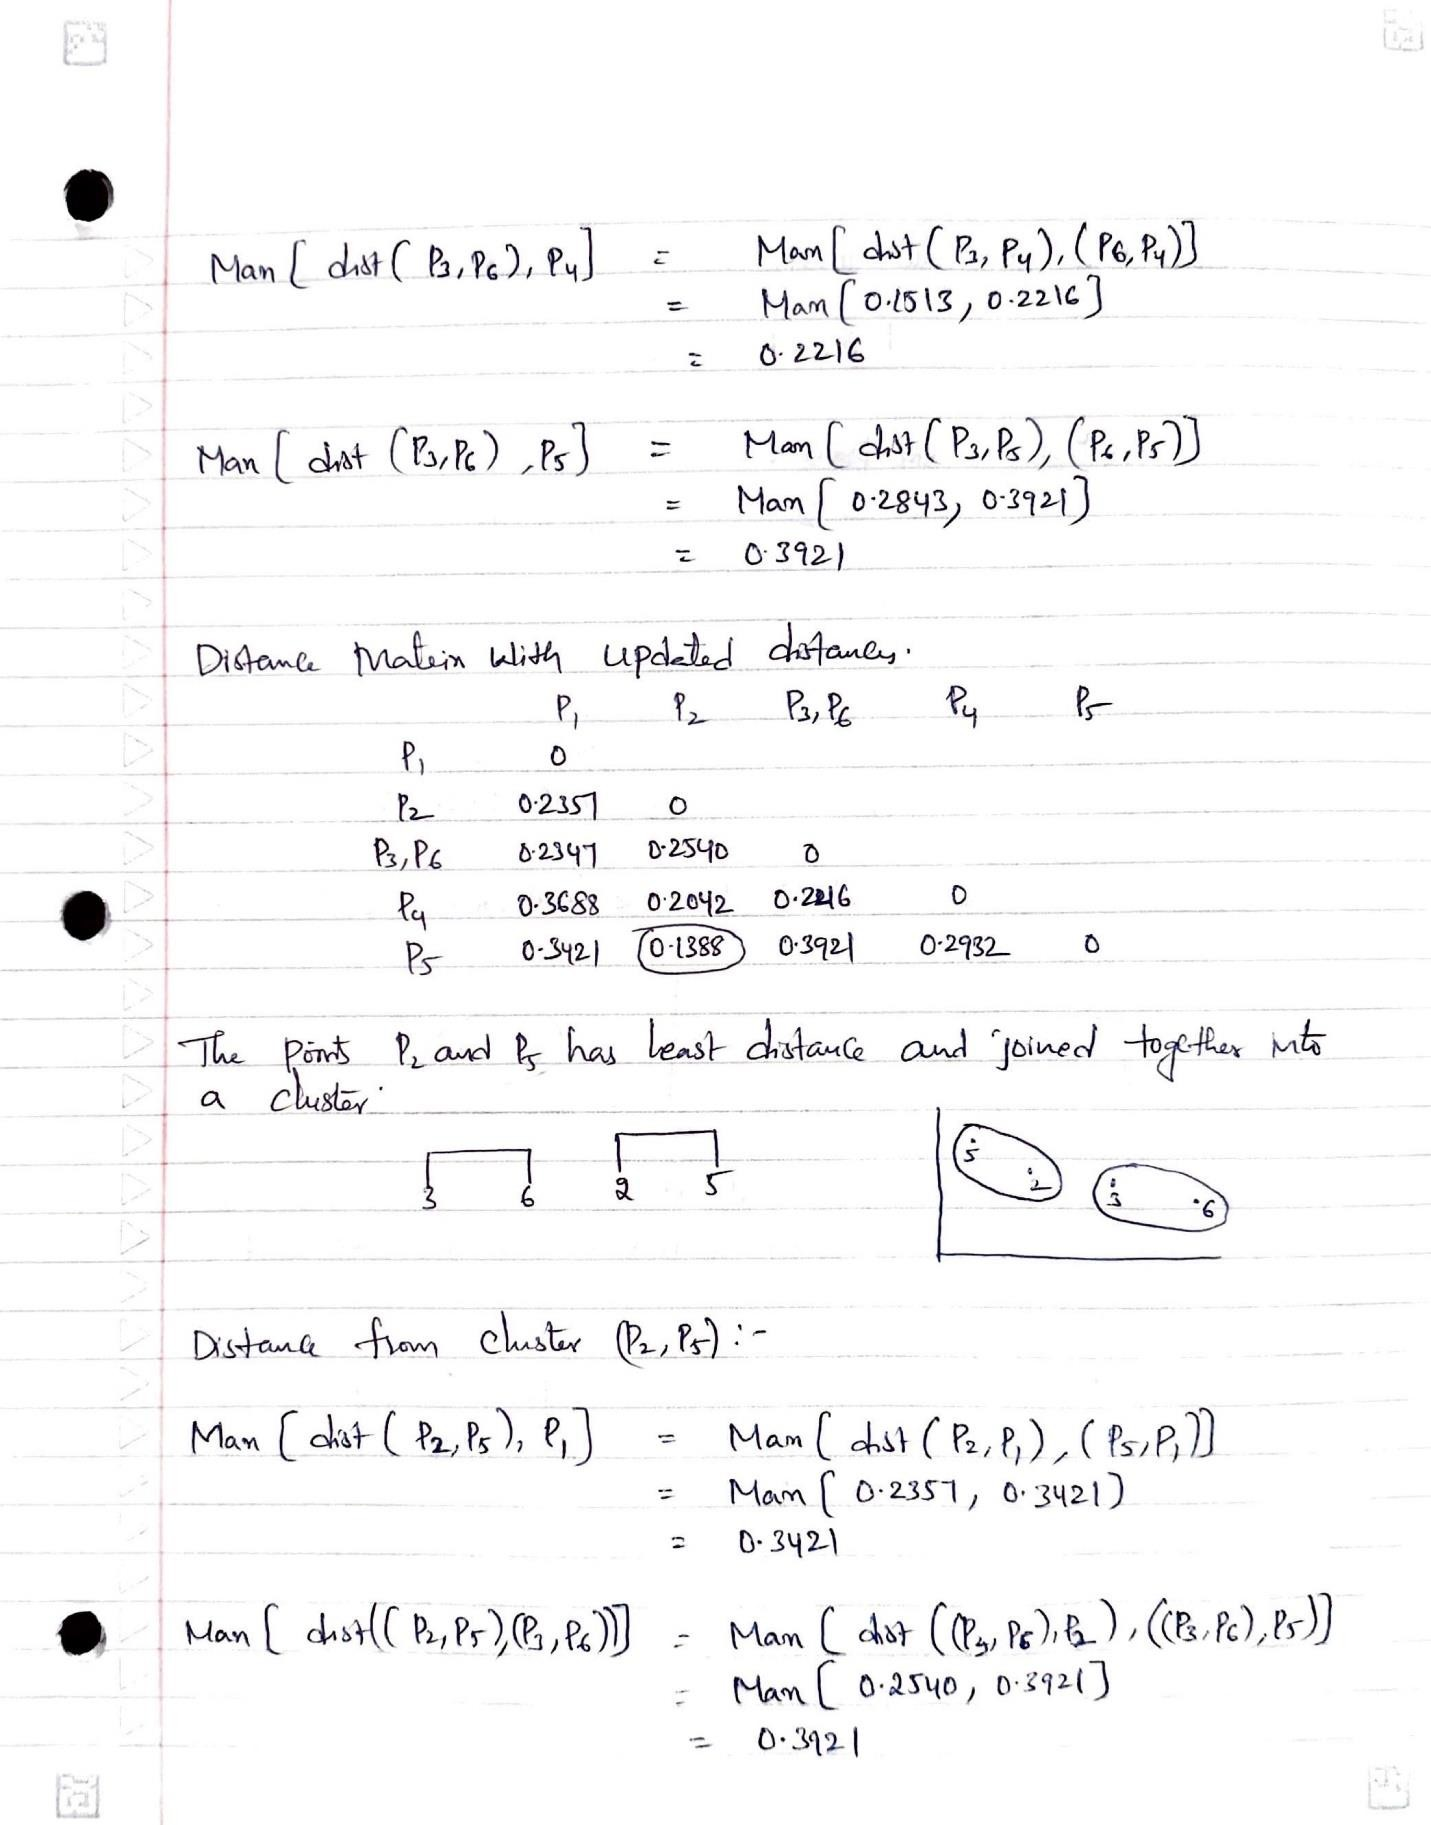 Man [ dist ( P3, P6 ), P4 ] = Man [ dist ( P3, P4 ), ( P6, P4 ) ]
= Man [ 0.1513, 0.2216 ]
= 0.2216
Man [ dist ( P3, P6 ) , P5 ] = Man [ dist ( P3, P5 ), ( P6, P5 ) ]
= Man [ 0.2843, 0.3921 ]
= 0.3921
Distance Matrix with updated distances.
P1 P2 P3, P6 P4 P5
P1 0
P2 0.2357 0
P3, P6 0.2347 0.2540 0
P4 0.3688 0.2042 0.2216 0
P5 0.3421 0.1388 0.3921 0.2932 0
The points P2 and P5 has least distance and joined together into
a cluster.
3 6 2 5
5 2 3 6
Distance from cluster (P2, P5) :-
Man [ dist ( P2, P5 ), P1 ] = Man [ dist ( P2, P1 ), ( P5, P1 ) ]
= Man [ 0.2357, 0.3421 )
= 0.3421
Man [ dist (( P2, P5 ), (P3, P6)) ] = Man [ dist ((P3, P6), P2 ), ((P3, P6), P5)) ]
= Man [ 0.2540, 0.3921 ]
= 0.3921